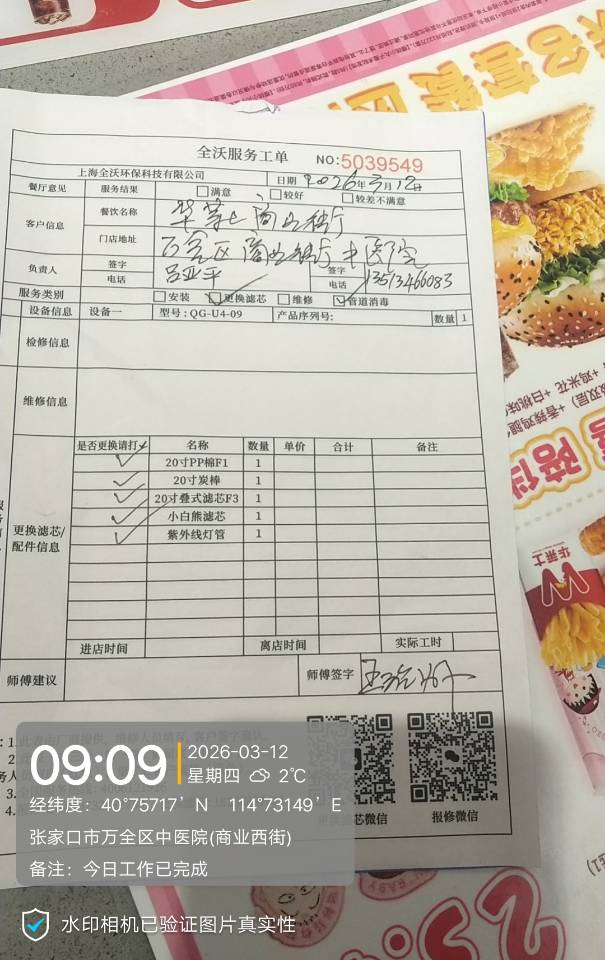 全沃服务工单 NO:5039549
上海全沃环保科技有限公司 日期 2026年3月12日
餐厅意见 服务结果 满意 较好 较差不满意
客户信息 餐饮名称 华莱士商业街
门店地址 万全区商业街中医院
负责人 签字 吕亚平 签字
电话 电话 13513466083
服务类别 安装 更换滤芯 维修 管道消毒
设备信息 设备一 型号:QG-U4-09 产品序列号: 数量 1
检修信息
维修信息
更换滤芯/配件信息
是否更换请打✓ 名称 数量 单价 合计 备注
✓ 20寸PP棉F1 1
✓ 20寸炭棒 1
✓ 20寸叠式滤芯F3 1
✓ 小白熊滤芯 1
✓ 紫外线灯管 1
进店时间 离店时间 实际工时
师傅建议 师傅签字
报修微信
09:09 2026-03-12
星期四 2℃
经纬度:40°75717′N 114°73149′E
张家口市万全区中医院(商业西街)
备注:今日工作已完成
水印相机已验证图片真实性
华莱士